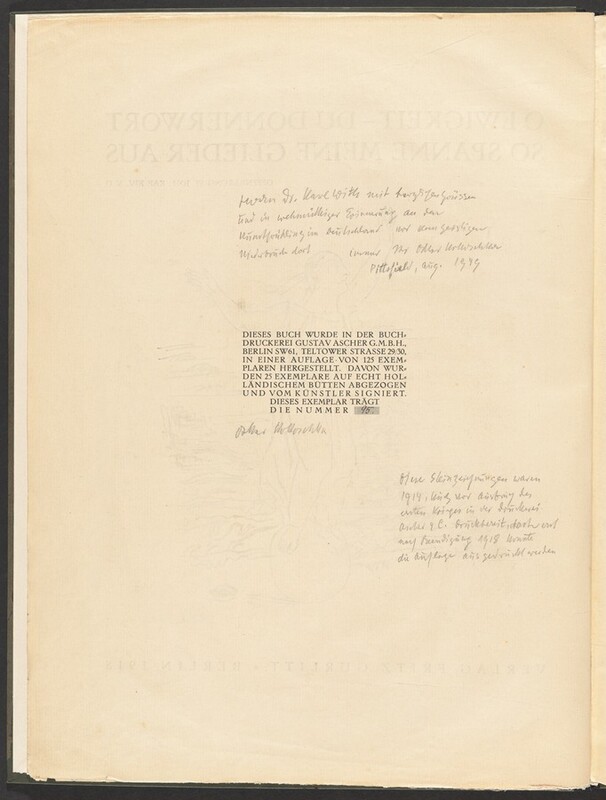 O EWIGKEIT – DU DONNERWORT
SO SPANNE MEINE GLIEDER AUS
Herrn Dr. Karl With mit herzlichen Grüssen
und in wehmütiger Erinnerung an den
Kunstfrühling in Deutschland vor dem geistigen
dort immer Ihr Oskar Kokoschka
Pittsfield, Aug. 1949
DIESES BUCH WURDE IN DER BUCH-
DRUCKEREI GUSTAV ASCHER G.M.B.H.,
BERLIN SW61, TELTOWER STRASSE 29/30,
IN EINER AUFLAGE VON 125 EXEM-
PLAREN HERGESTELLT. DAVON WUR-
DEN 25 EXEMPLARE AUF ECHT HOL-
LÄNDISCHEM BÜTTEN ABGEZOGEN
UND VOM KÜNSTLER SIGNIERT.
DIESES EXEMPLAR TRÄGT
DIE NUMMER 95
Oskar Kokoschka
Diese Steinzeichnungen waren
1914, kurz vor Ausbruch des
ersten Krieges in der Druckerei
Ascher druckbereit, doch erst
nach Beendigung 1918 konnte
die Auflage ausgedruckt werden
VERLAG FRITZ GURLITT • BERLIN 1918